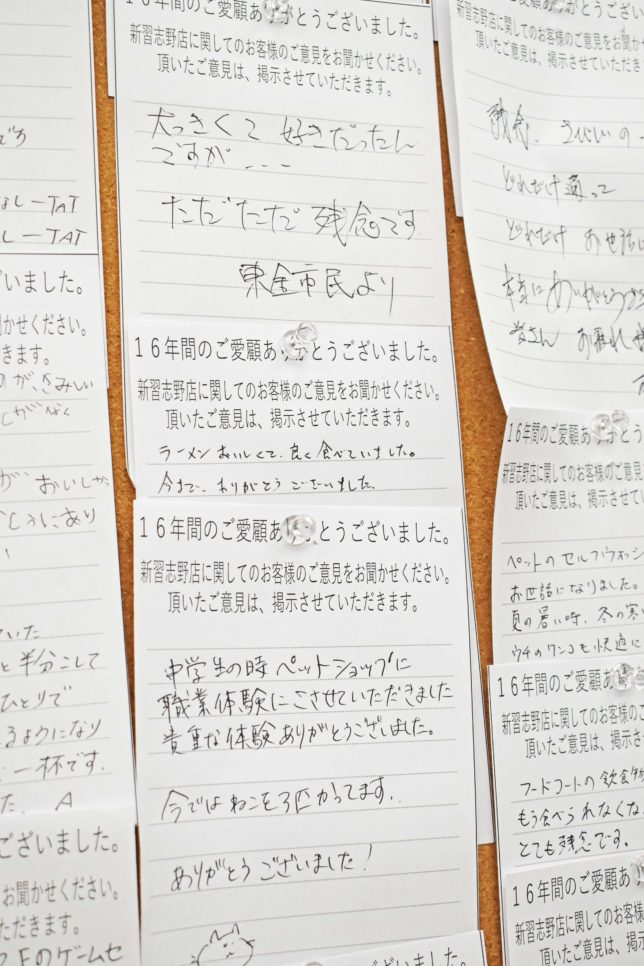 16年間のご愛顧ありがとうございました。
新習志野店に関してのお客様のご意見をお聞かせください。
頂いたご意見は、掲示させていただきます。
大っきくて 好きだったん
ですが...
ただただ 残念です
東金市民より
16年間のご愛顧ありがとうございました。
新習志野店に関してのお客様のご意見をお聞かせください。
頂いたご意見は、掲示させていただきます。
ラーメン おいしくて、良く食べていました。
今まで、ありがとうございました
16年間のご愛顧ありがとうございました。
新習志野店に関してのお客様のご意見をお聞かせください。
頂いたご意見は、掲示させていただきます。
中学生の時 ペットショップに
職業体験にこさせていただきました
貴重な体験ありがとうございました。
今ではねこを3匹かってます.
ありがとうございました!
ざいました。
かせください。
きます。
がさみしい
おいしか
にあり
いた
と半分こして
ひとりで
るようになり
一杯です.
た. A
ございました。
お聞かせください。
ただきます。
のゲームセ
新習志野店に関してのお客様のご意見をお聞
頂いたご意見は、掲示させていただき
どれだけ通って
どれだけ お世話に
本当にありがとうござ
皆さん お疲れ
16年間のご愛顧ありがとう
新習志野店に関してのお客様のご意見
頂いたご意見は、掲示させ
ペットのセルフウォッシ
お世話になりました。
夏の暑い時、冬の寒い
ウチのワンコも快適に
16年間のご愛顧あ
新習志野店に関してのお客様のご
頂いたご意見は、掲示さ
フードコートの飲食
もう食べられなくな
とても残念です。
16年間のご愛顧あり
新習志野店に関してのお客様の
頂いたご意見は、掲示